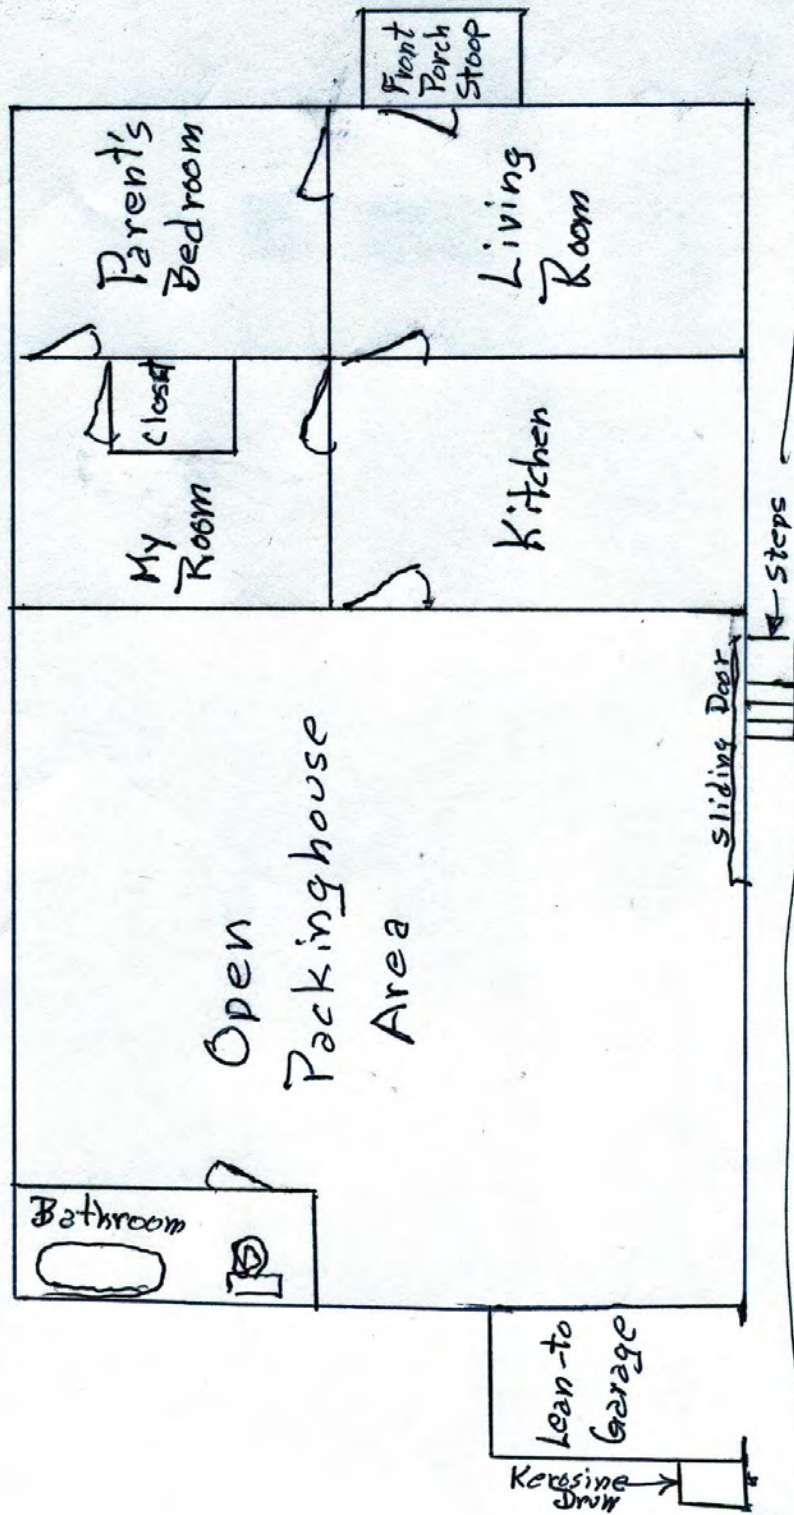 Front
Porch
Stoop
Parent's
Bedroom
Living
Room
Closet
My
Room
Kitchen
Steps
Sliding Door
Open
Packinghouse
Area
Bathroom
Lean-to
Garage
Kerosine
Drum